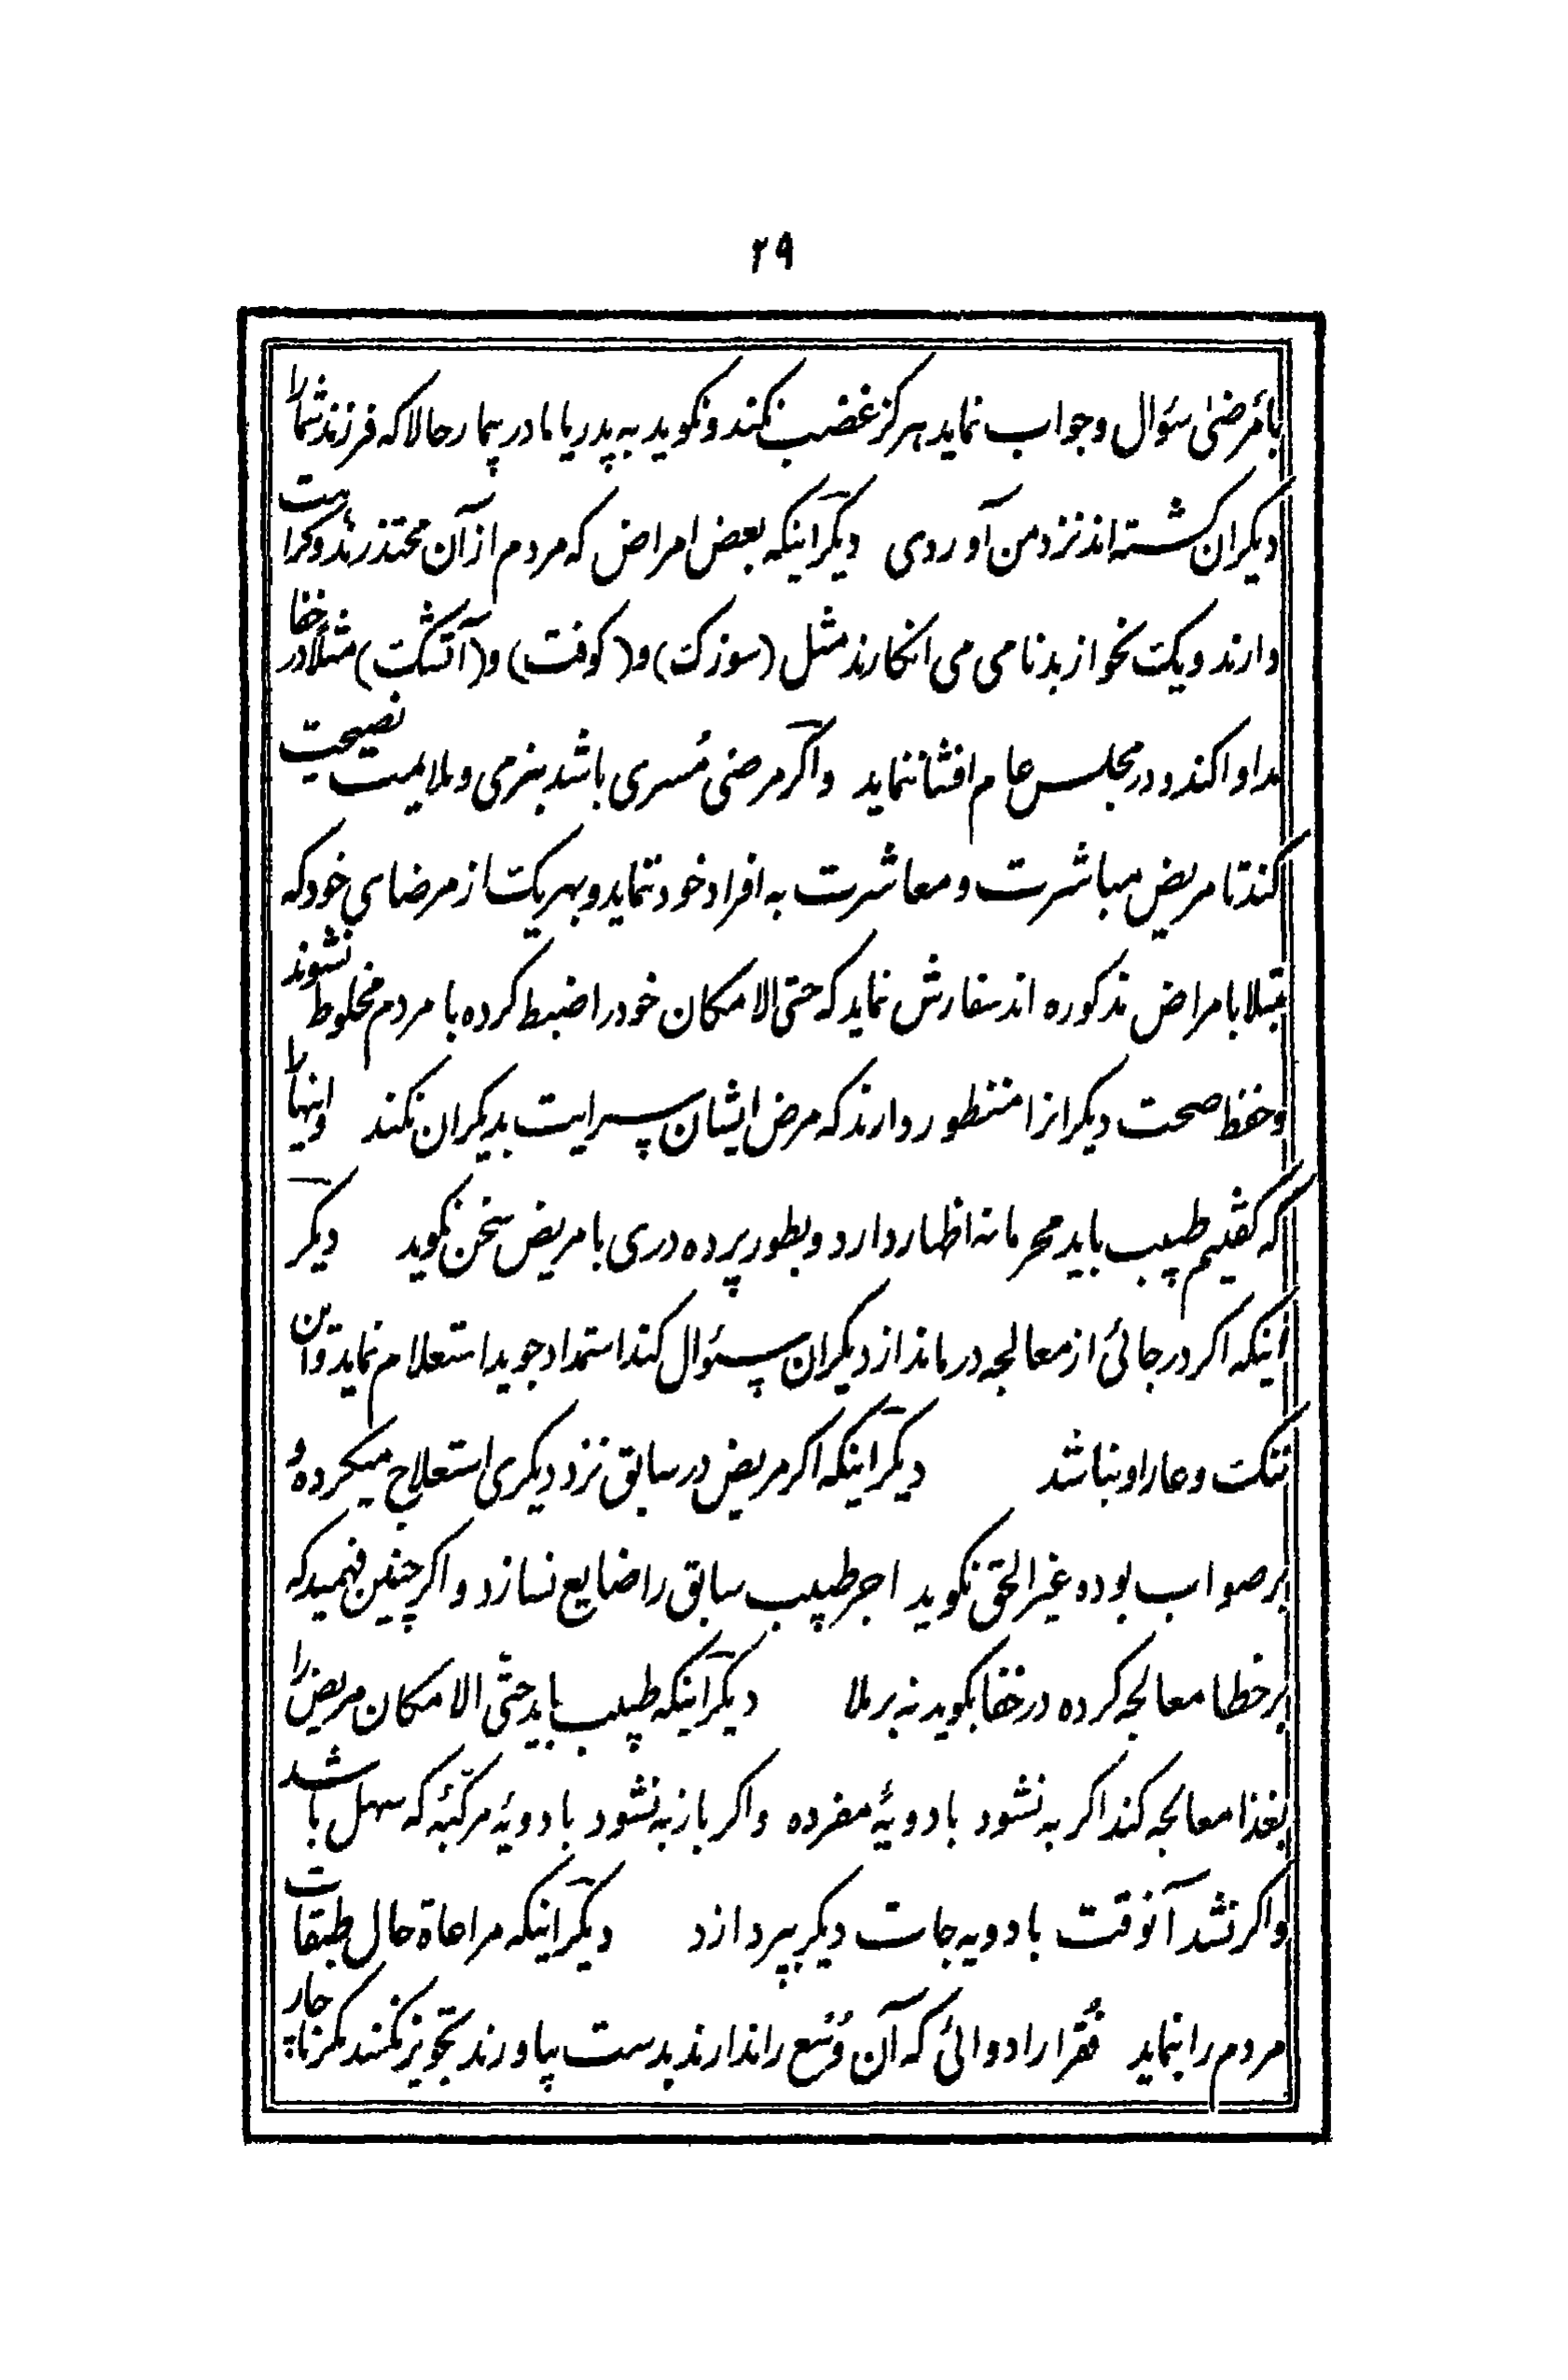 ۲۹
بامرضیٰ سؤال و جواب نماید هرکز غضب نکند و نکوید به پدر یا مادر بیمار حالا که فرزند شما را
دیکران کشته اند نزد من آوردی دیکر اینکه بعض امراض که مردم از آن محتذرند و کراهت
دارند و یک نحو از بدنامی می انکارند مثل (سوزک) و (کوفت) و (آتشک) مثلاً در خفا
مداوا کند و در مجلس عام افشا ننماید و اکر مرضی مُسری باشد بنرمی و ملایمت نصیحت
کند تا مریض مباشرت و معاشرت به افراد خود ننماید و بهر یک از مرضای خود که
مبتلا بامراض مذکوره اند سفارش نماید که حتی الامکان خود را ضبط کرده با مردم مخلوط نشوند
و حفظ صحت دیکرانرا منظور دارند که مرض ایشان سرایت بدیکران نکند و اینها را
که کفتیم طبیب باید محرمانه اظهار دارد و بطور پرده دری با مریض سخن نکوید دیکر
اینکه اکر در جائی از معالجه درماند از دیکران سئوال کند استمداد جوید استعلام نماید و این
ننک و عار او نباشد دیکر اینکه اکر مریض در سابق نزد دیکری استعلاج میکرده و
بر صواب بوده غیر الحق نکوید اجر طبیب سابق را ضایع نسازد و اکر چنین فهمید که
بر خطا معالجه کرده در خفا بکوید نه برملا دیکر اینکه طبیب باید حتی الامکان مریض را
بغذا معالجه کند اکر به نشود بادویهٔ مفرده و اکر باز به نشود بادویهٔ مرکّبهٔ که سهل باشد
و اکر نشد آنوقت بادویه جات دیکر بپردازد دیکر اینکه مراعاة حال طبقات
مردم را بنماید فُقرا را دوائی که آن وُسْع را ندارند بدست بیاورند تجویز نکند مکر ناچار